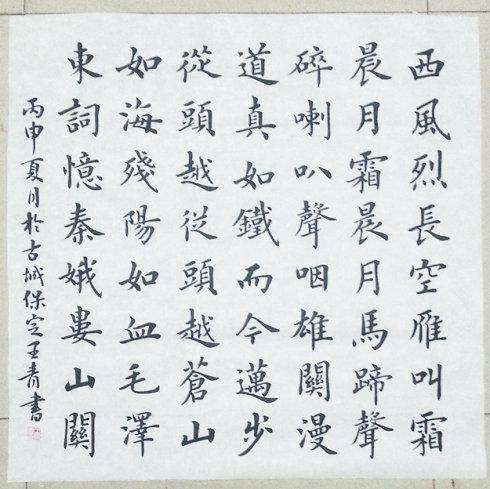 西風烈長空雁叫霜
晨月霜晨月馬蹄聲
碎喇叭聲咽雄關漫
道真如鐵而今邁步
從頭越從頭越蒼山
如海殘陽如血毛澤
東詞憶秦娥婁山關
丙申夏月於古城保定王青書